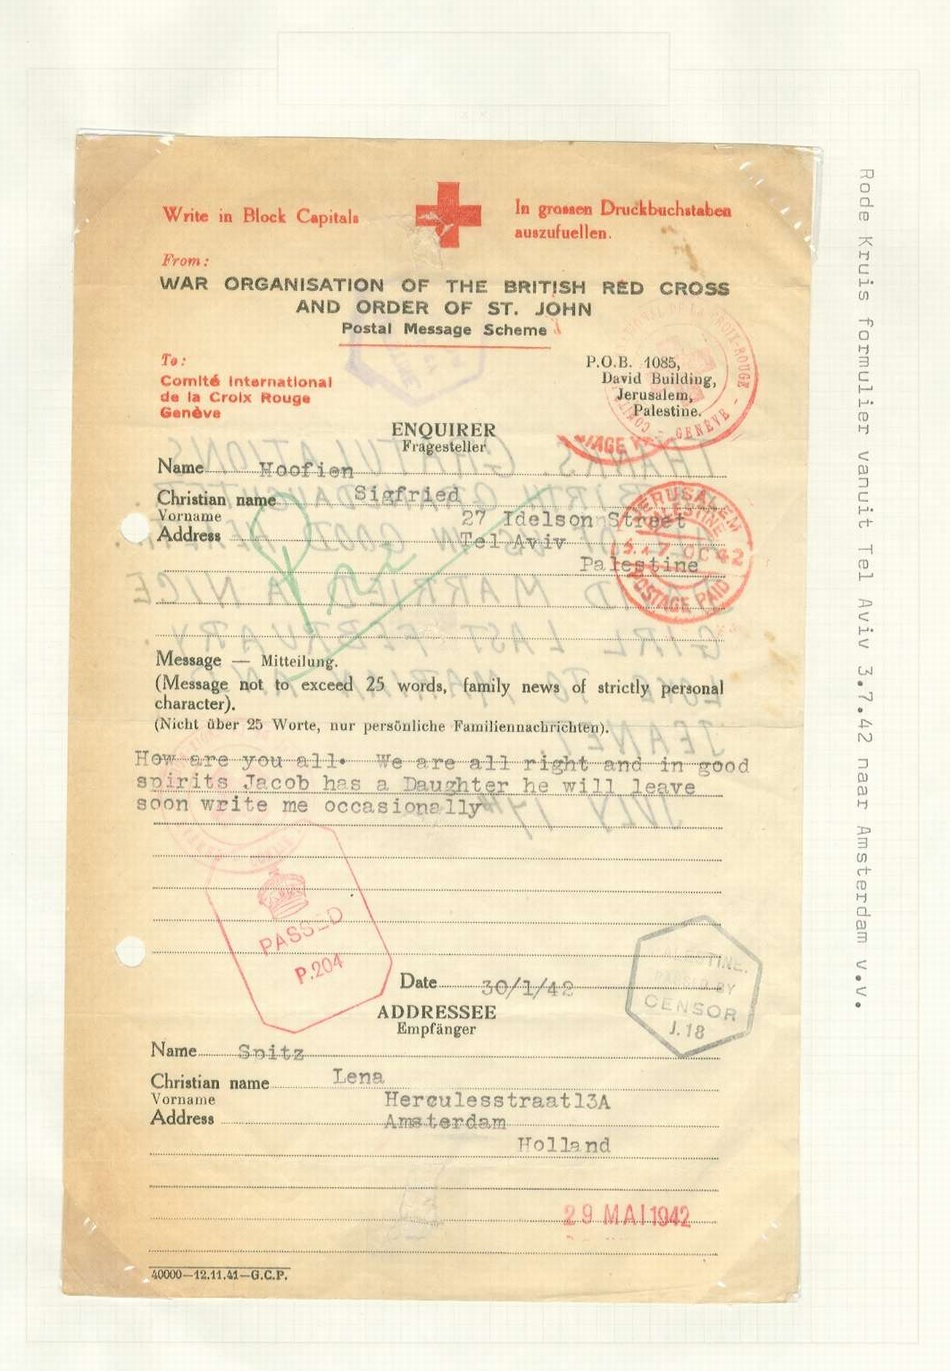 Write in Block Capitals
In grossen Druckbuchstaben
auszufuellen.
From:
WAR ORGANISATION OF THE BRITISH RED CROSS
AND ORDER OF ST. JOHN
Postal Message Scheme
To:
Comité International
de la Croix Rouge
Genève
P.O.B. 1085,
David Building,
Jerusalem,
Palestine.
ENQUIRER
Fragesteller
Name Hoofien
Christian name Sigfried
Vorname
Address 27 Idelson Street
Tel Aviv
Palestine
JERUSALEM
PALESTINE
OC 42
POSTAGE PAID
GENÈVE
Message — Mitteilung.
(Message not to exceed 25 words, family news of strictly personal
character).
(Nicht über 25 Worte, nur persönliche Familiennachrichten).
How are you all. We are all right and in good
spirits Jacob has a Daughter he will leave
soon write me occasionally
THANKS. GRATULATIONS
BIRTH GRANDDAUGHTER.
OF US IN GOOD HEALTH.
DAVID MARRIED A NICE
GIRL LAST FEBRUARY.
LOVE TO
JEANET
JULY 17th
PASSED
P.204
Date 30/1/42
PALESTINE.
PASSED BY
CENSOR
J.18
ADDRESSEE
Empfänger
Name Spitz
Christian name Lena
Vorname
Address Herculesstraat13A
Amsterdam
Holland
29 MAI 1942
40000—12.11.41—G.C.P.
Rode Kruis formulier vanuit Tel Aviv 3.7.42 naar Amsterdam v.v.